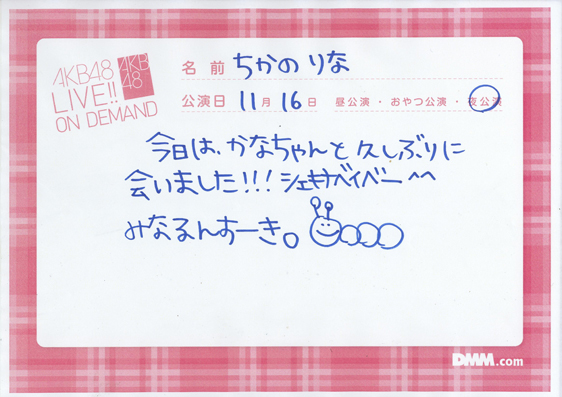 AKB48
LIVE!!
ON DEMAND
AKB
48
名前 ちかの りな
公演日 11月16日 昼公演・おやつ公演・夜公演
今日は、かなちゃんと久しぶりに
会いました!!! シェキナベイベー^^
みなるんすーき。
DMM.com